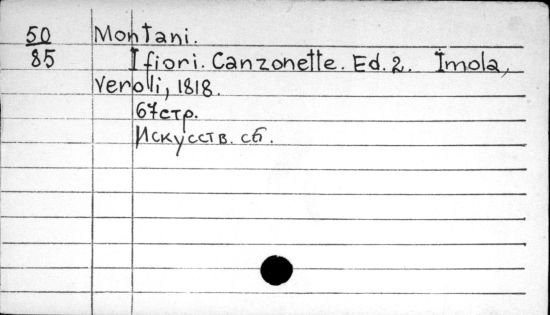 50 Montani.
85 I fiori. Canzonette. Ed. 2. Imola,
Verolli, 1818.
67 стр.
Искусств. сб.